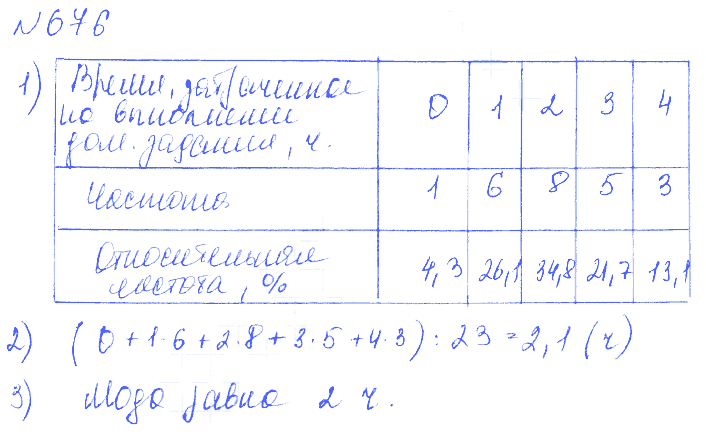 №676
1) Время, затраченное
на выполнение
дом. задания, ч.
0 1 2 3 4
Частота 1 6 8 5 3
Относительная
частота, %
4,3 26,1 34,8 21,7 13,1
2) (0+1·6+2·8+3·5+4·3):23=2,1 (ч)
3) Мода равна 2 ч.